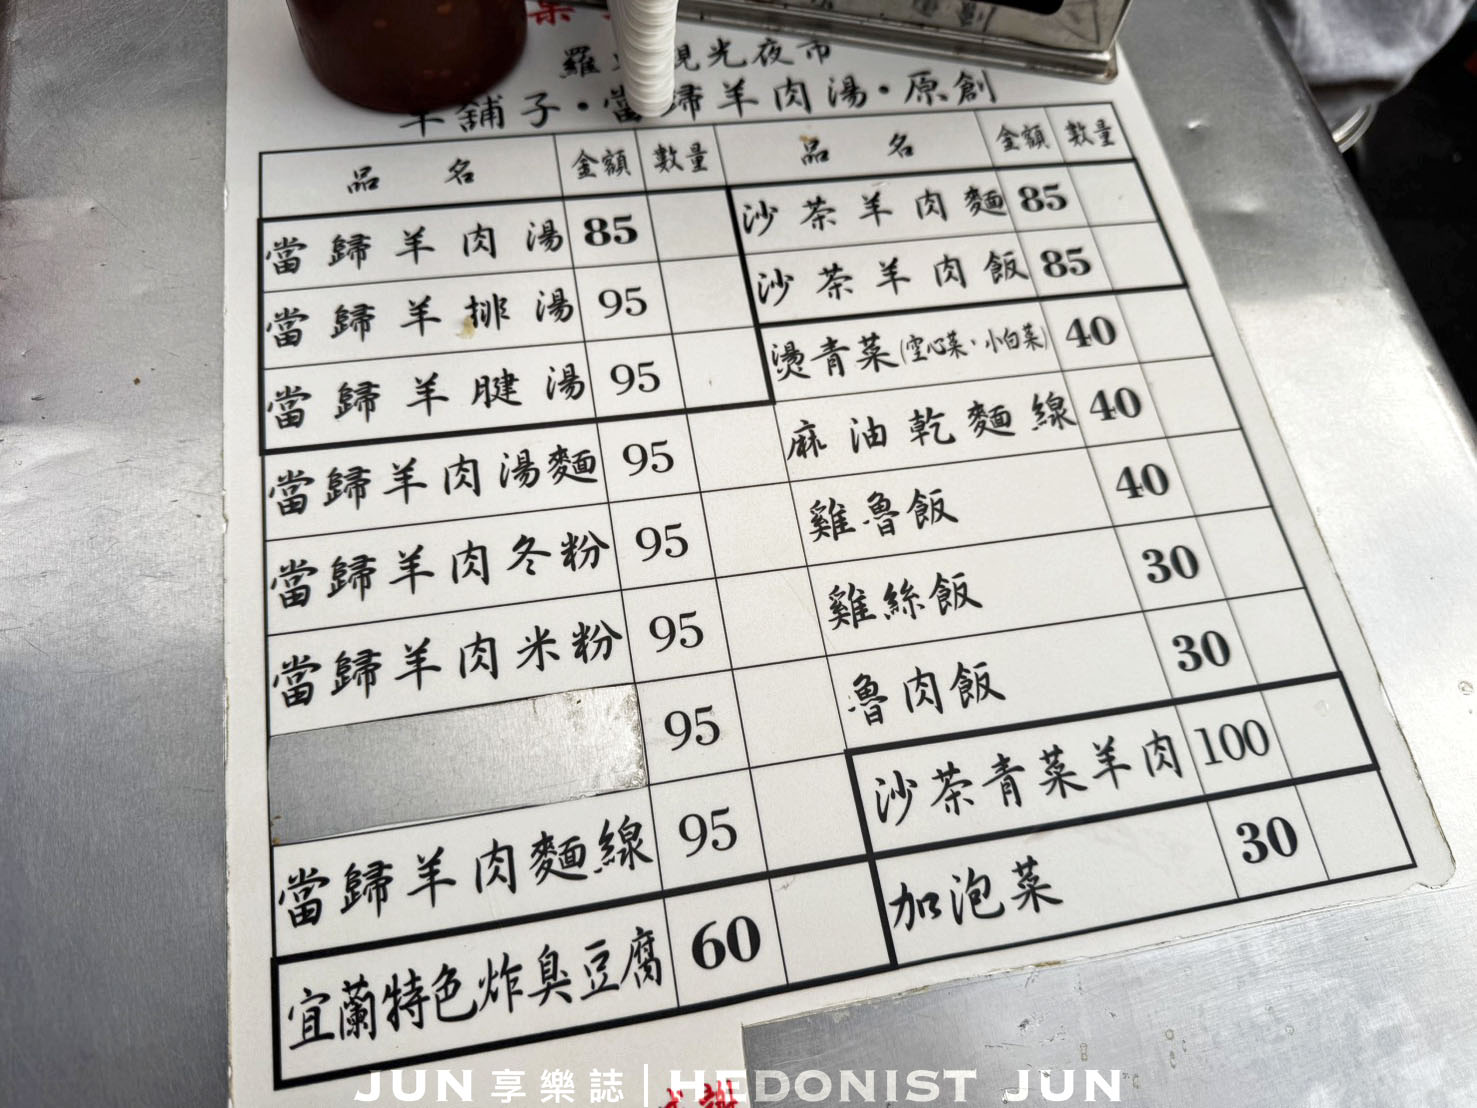 羅 觀光夜市
羊舖子·當歸羊肉湯·原創
品名 金額 數量 品名 金額 數量
當歸羊肉湯 85
當歸羊排湯 95
當歸羊腱湯 95
當歸羊肉湯麵 95
當歸羊肉冬粉 95
當歸羊肉米粉 95
95
當歸羊肉麵線 95
宜蘭特色炸臭豆腐 60
沙茶羊肉麵 85
沙茶羊肉飯 85
燙青菜(空心菜·小白菜) 40
麻油乾麵線 40
雞魯飯 40
雞絲飯 30
魯肉飯 30
沙茶青菜羊肉 100
加泡菜 30
JUN享樂誌 | HEDONIST JUN